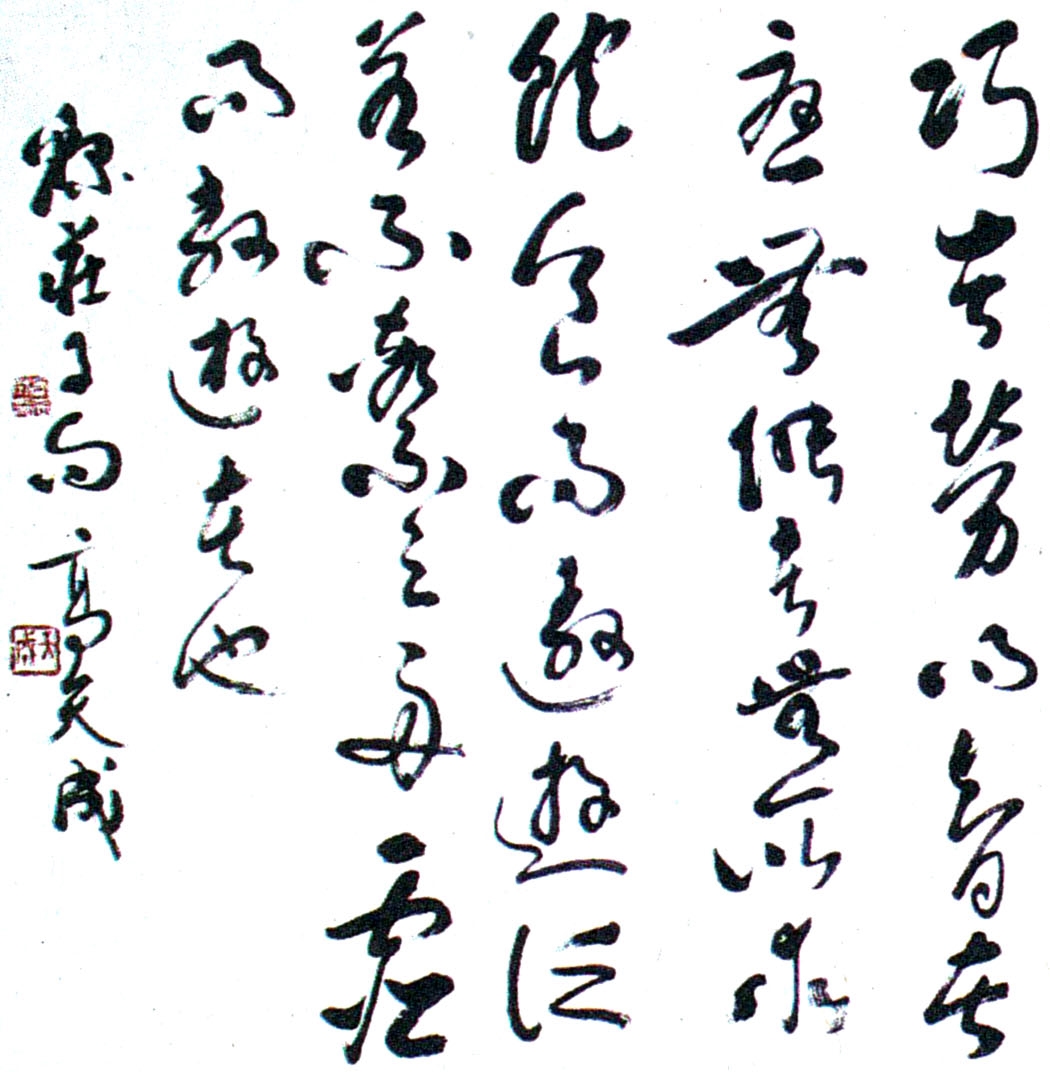 巧者勞而智者
憂無能者無所求
飽食而遨遊泛
若不繫之舟虛
而敖遊者也
莊子句 高天成